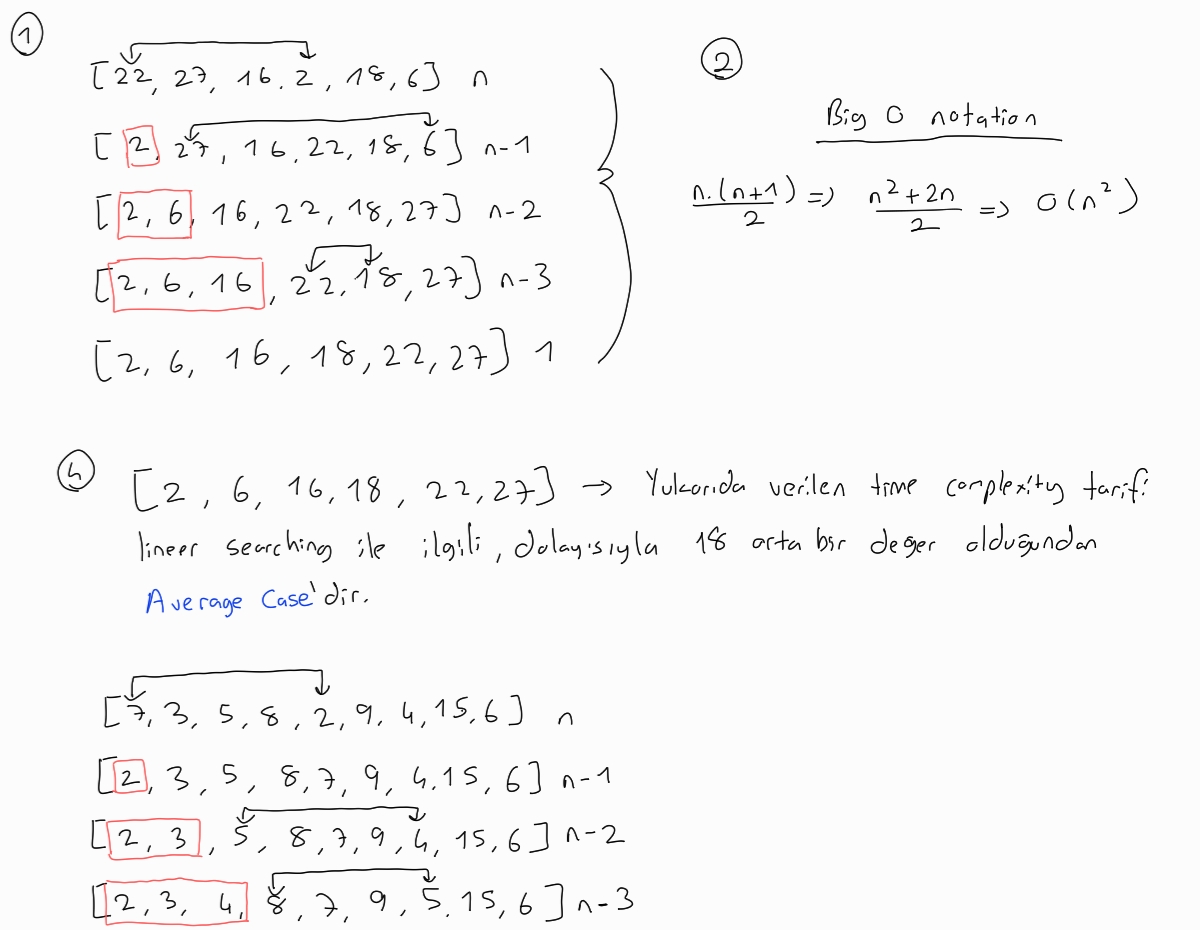 1
[22, 27, 16, 2, 18, 6] n
[2, 27, 16, 22, 18, 6] n-1
[2, 6, 16, 22, 18, 27] n-2
[2, 6, 16, 22, 18, 27] n-3
[2, 6, 16, 18, 22, 27] 1
2
Big O notation
n.(n+1)/2 => n²+2n/2 => O(n²)
4
[2, 6, 16, 18, 22, 27] → Yukarıda verilen time complexity tarifi
lineer searching ile ilgili, dolayısıyla 18 orta bir değer olduğundan
Average Case'dir.
[7, 3, 5, 8, 2, 9, 4, 15, 6] n
[2, 3, 5, 8, 7, 9, 4, 15, 6] n-1
[2, 3, 5, 8, 7, 9, 4, 15, 6] n-2
[2, 3, 4, 8, 7, 9, 5, 15, 6] n-3